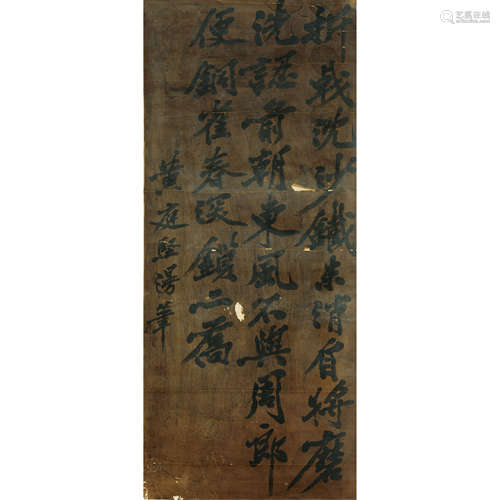 折戟沈沙鐵未消自將磨
洗認前朝東風不與周郎
便銅雀春深鎖二喬
黃庭堅筆
艺狐在线